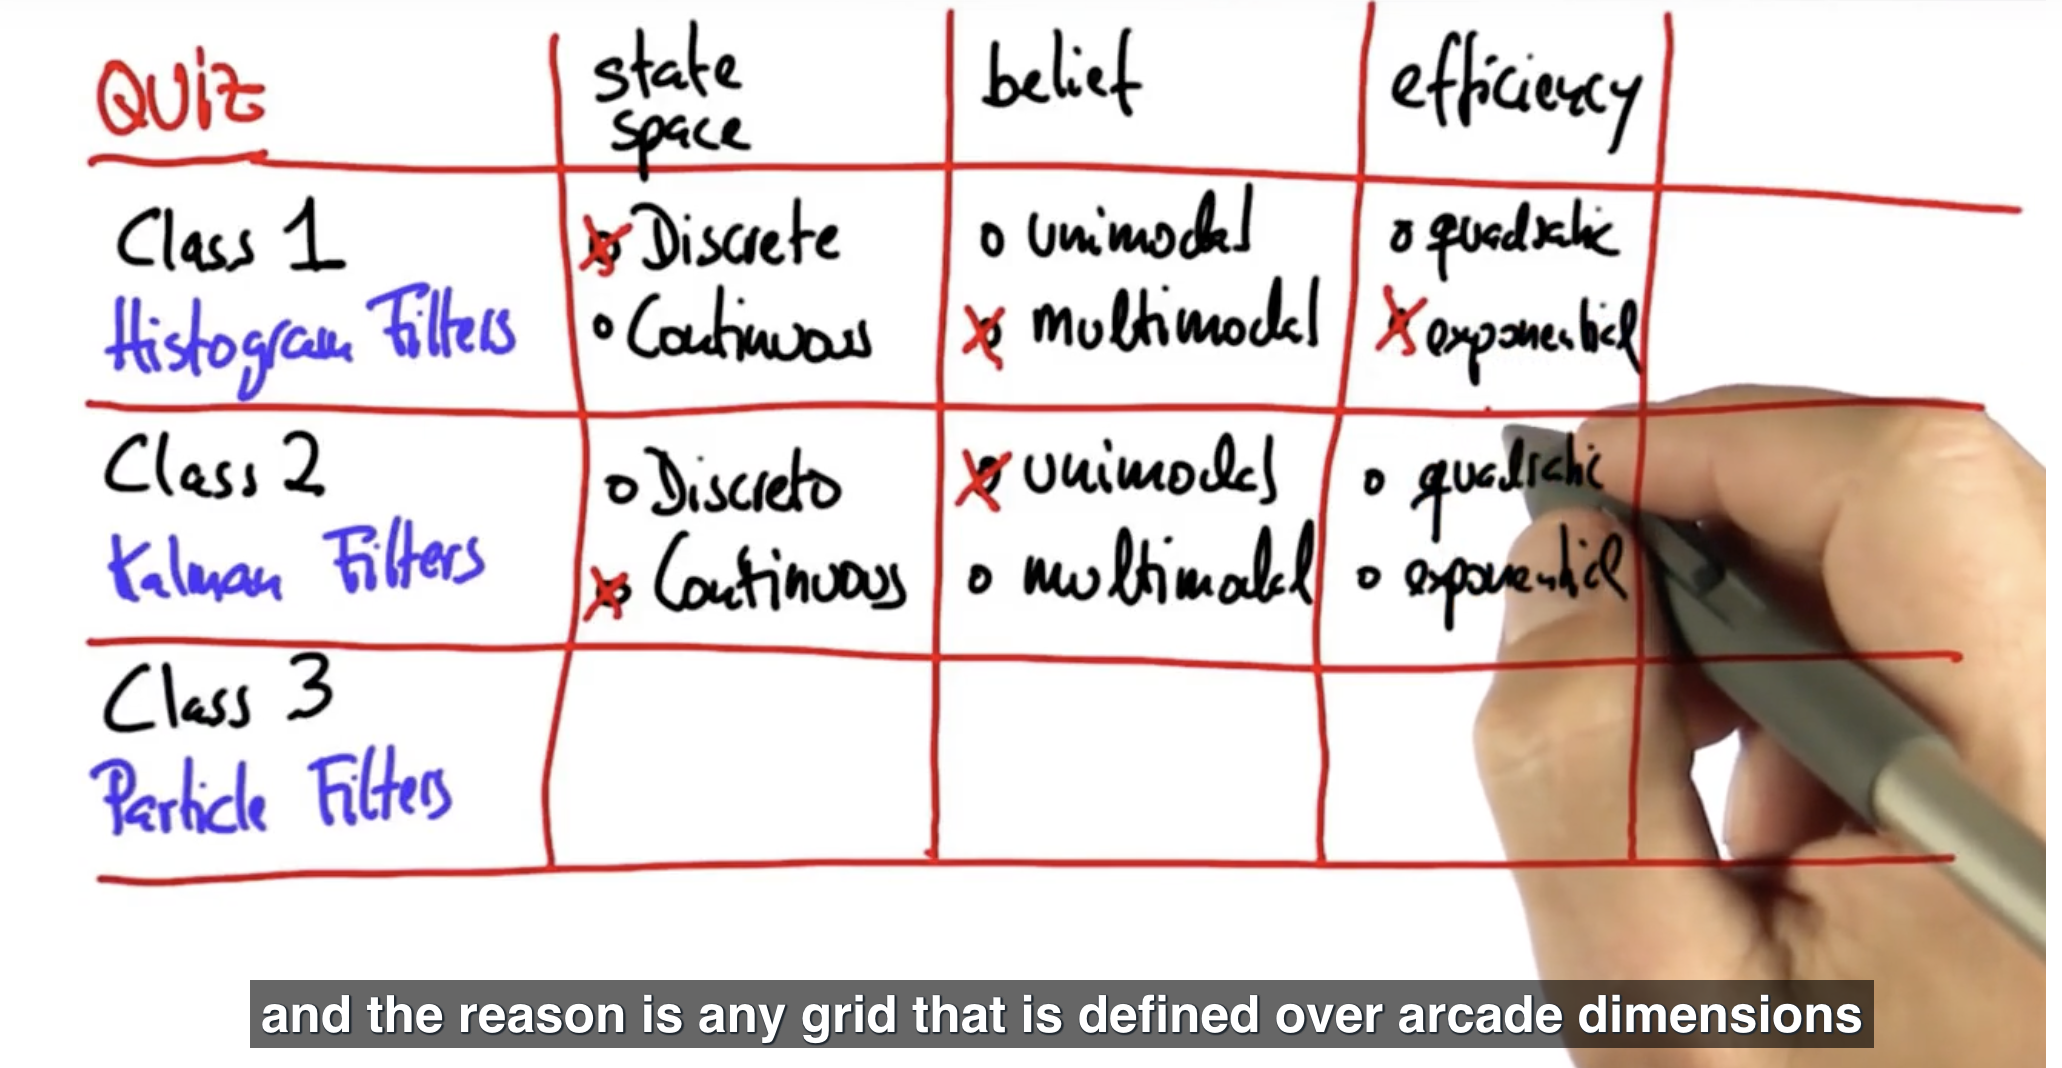 QUiz
state
space
belief
efficiency
Class 1
Histogram Filters
Discrete
Continuous
unimodal
multimodal
quadratic
exponential
Class 2
Kalman Filters
Discrete
Continuous
unimodal
multimodal
quadratic
exponential
Class 3
Particle Filters
and the reason is any grid that is defined over arcade dimensions